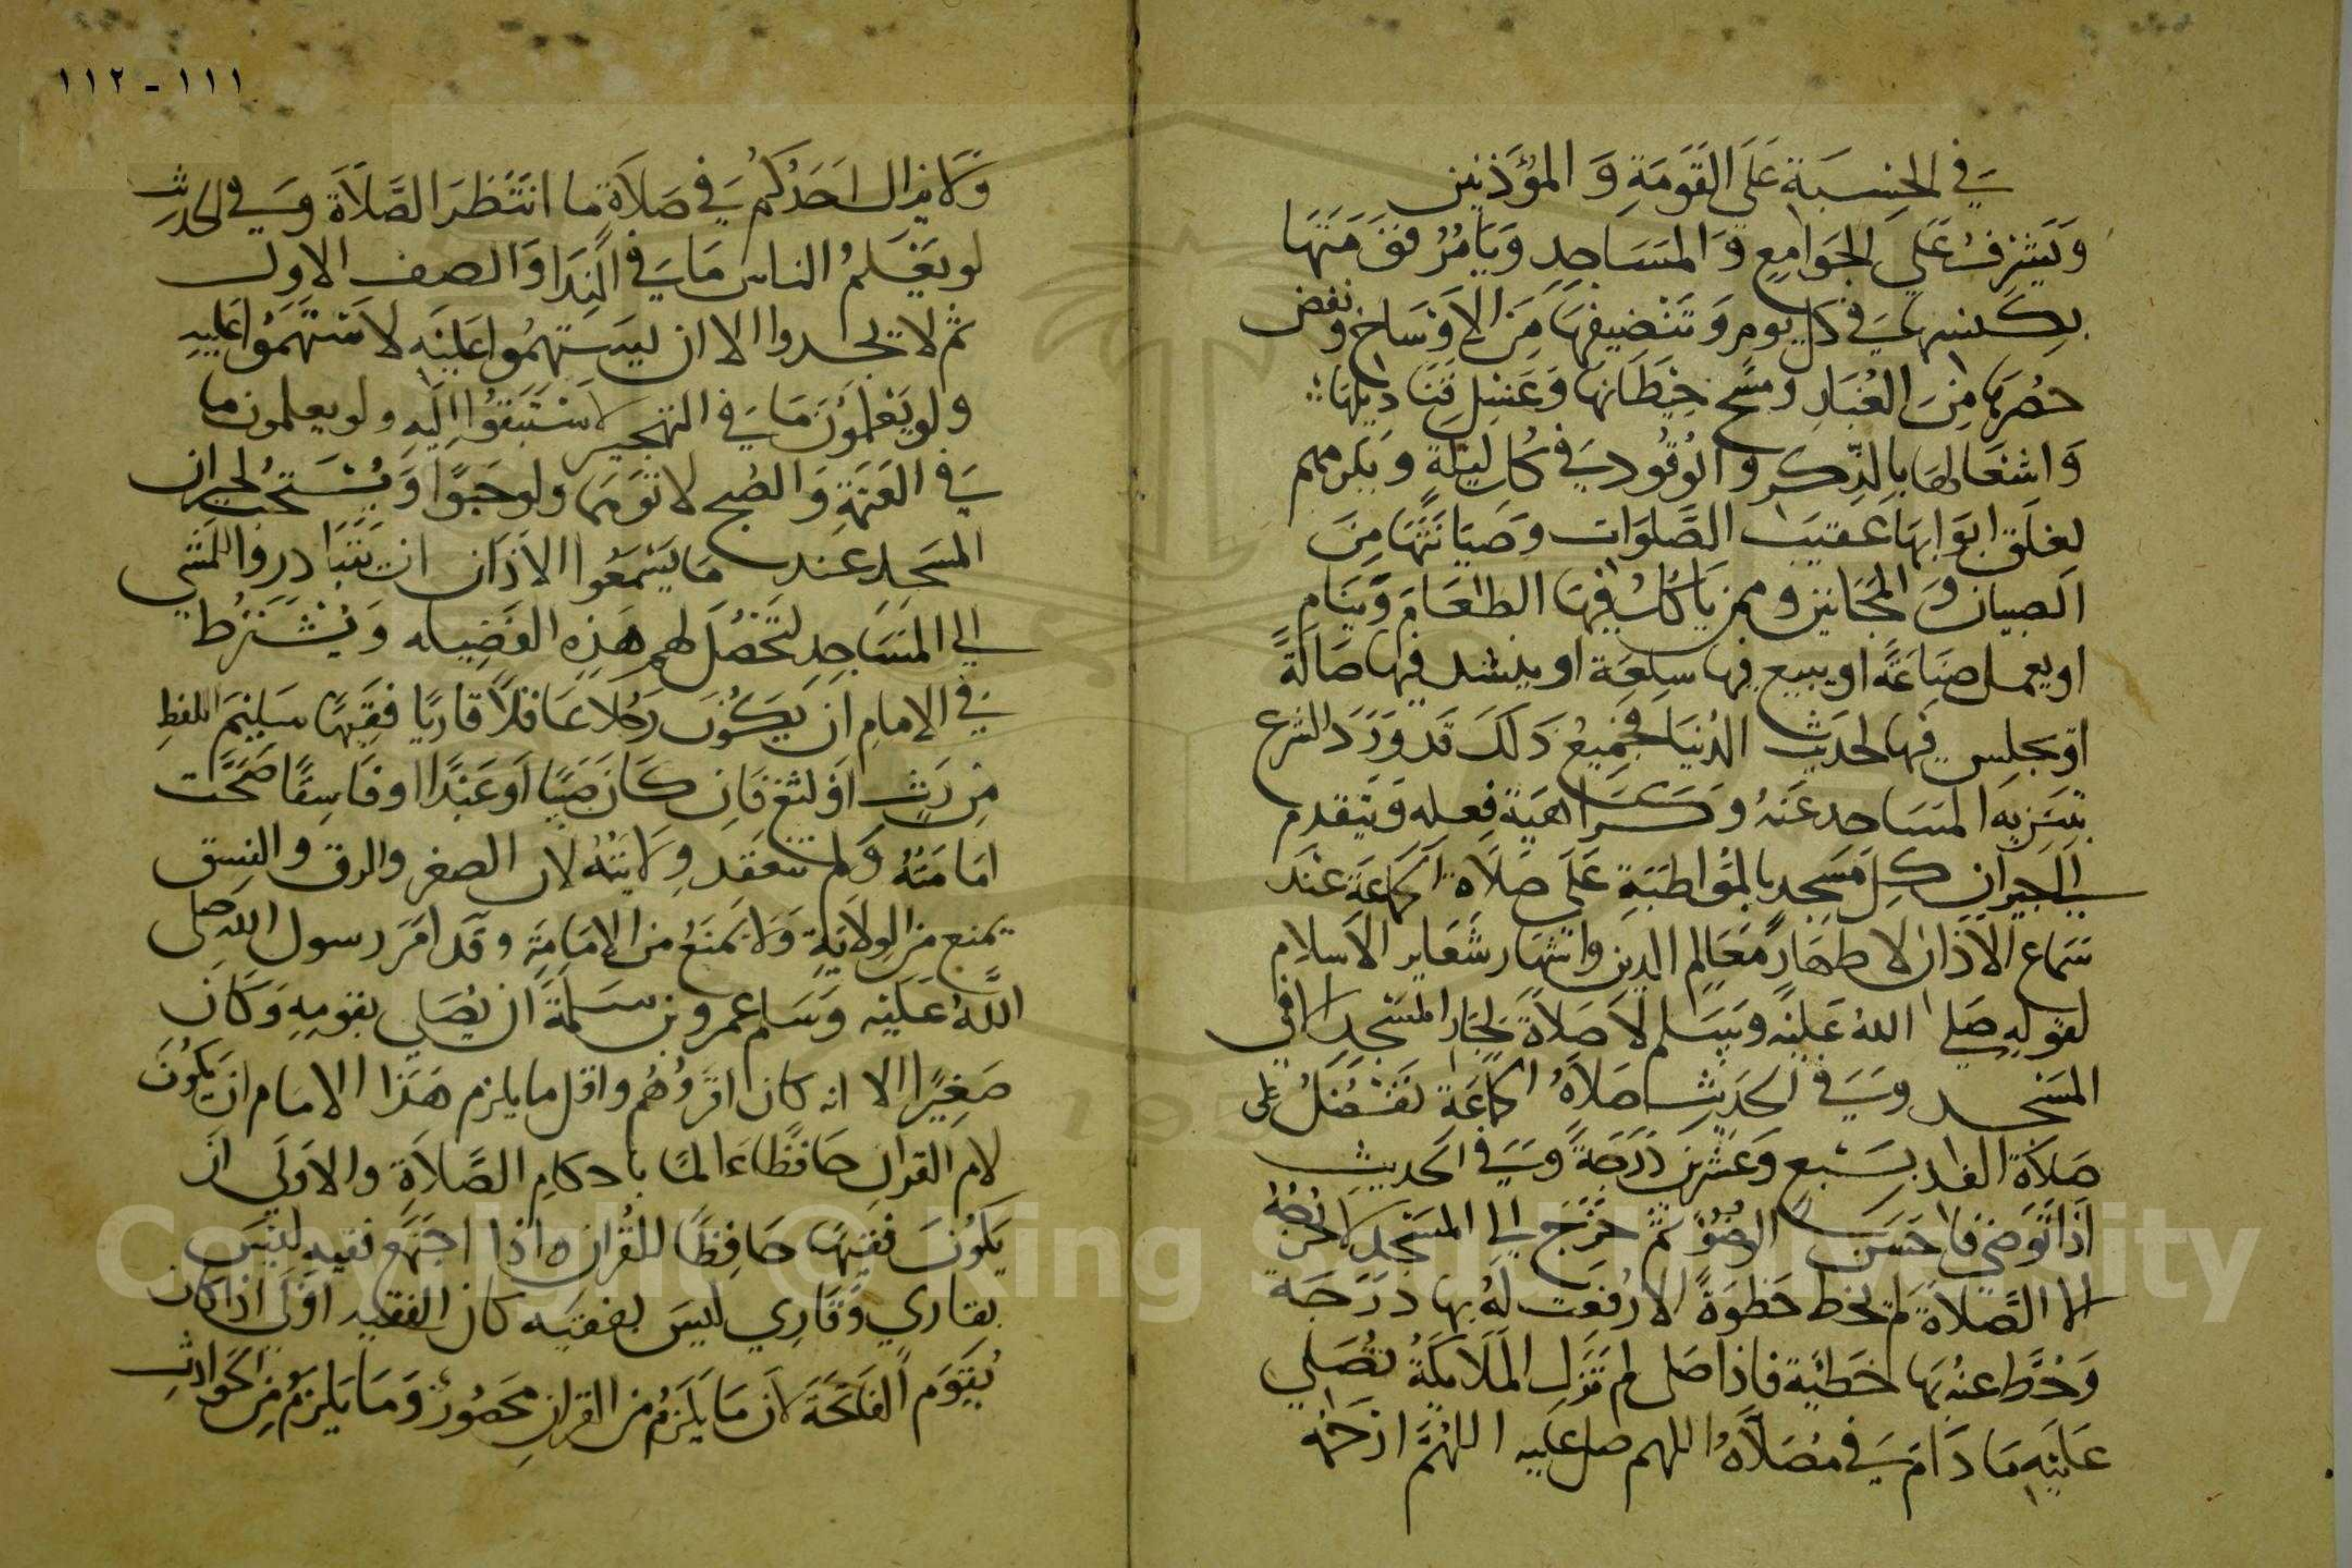 في الحسبة على القومة والمؤذنين
ويشرف على الجوامع والمساجد ويامر قومتها
بكنسها في كل يوم وتنضيفها من الاوساخ ونفض
حصرها من الغبار ومسح حيطانها وغسل قناديلها
واشعالها بالذكر والوقود في كل ليلة ويامرهم
بغلق ابوابها عقيب الصلوات وصيانتها من
الصبيان والمجانين وممن ياكل فيها الطعام وينام
او يعمل صناعة او يبيع فيها سلعة او ينشد فيها ضالة
او يجلس فيها لحديث الدنيا فجميع ذلك قد ورد الشرع
بتنزيه المساجد عنه وكراهية فعله ويتقدم
الى جيران كل مسجد بالمواظبة على صلاة الجماعة عند
سماع الاذان لاظهار معالم الدين واشهار شعاير الاسلام
لقوله صلى الله عليه وسلم لا صلاة لجار المسجد الا في
المسجد وفي الحديث صلاة الجماعة تفضل على
صلاة الفذ بسبع وعشرين درجة وفي الحديث
اذا توضى فاحسن الوضو ثم خرج الى المسجد لا تخرجه
الا الصلاة لم يخط خطوة الا رفعت له بها درجة
وحط عنه بها خطية فاذا صلى لم تزل الملايكة تصلي
عليه ما دام في مصلاه اللهم صل عليه اللهم ارحمه
١١١ - ١١٢
ولا يزال احدكم في صلاة ما انتظر الصلاة وفي الحديث
لو يعلم الناس ما في الندا والصف الاول
ثم لا يجدوا الا ان يستهموا عليه لاستهموا عليه
ولو يعلمون ما في التهجير لاستبقوا اليه ولو يعلمون ما
في العتمة والصبح لاتوهما ولو حبوا ويستحب لجيران
المسجد عند ما يسمعوا الاذان ان يتبادروا المشي
الى المساجد لتحصل لهم هذه الفضيله ويشترط
في الامام ان يكون رجلا عاقلا قاريا فقيها سليم اللفظ
من رث او لثغ فان كان صبيا او عبدا او فاسقا صحت
امامته ولم تنعقد ولايته لان الصغر والرق والفسق
يمنع من الولاية ولا يمنع من الامامة وقد امر رسول الله صلى
الله عليه وسلم عمرو بن سلمة ان يصلي بقومه وكان
صغيرا الا انه كان اقروهم واقل ما يلزم هذا الامام ان يكون
لام القران حافظا عالما باحكام الصلاة والاولى ان
يكون فقيها حافظا للقران واذا اجتمع فقيه ليس
بقاري وقاري ليس بفقيه كان الفقيه اولى اذا كان
يقوم الفاتحة لان ما يلزم من القران محصور وما يلزم من الحوادث
Copyright © King Saud University
1957